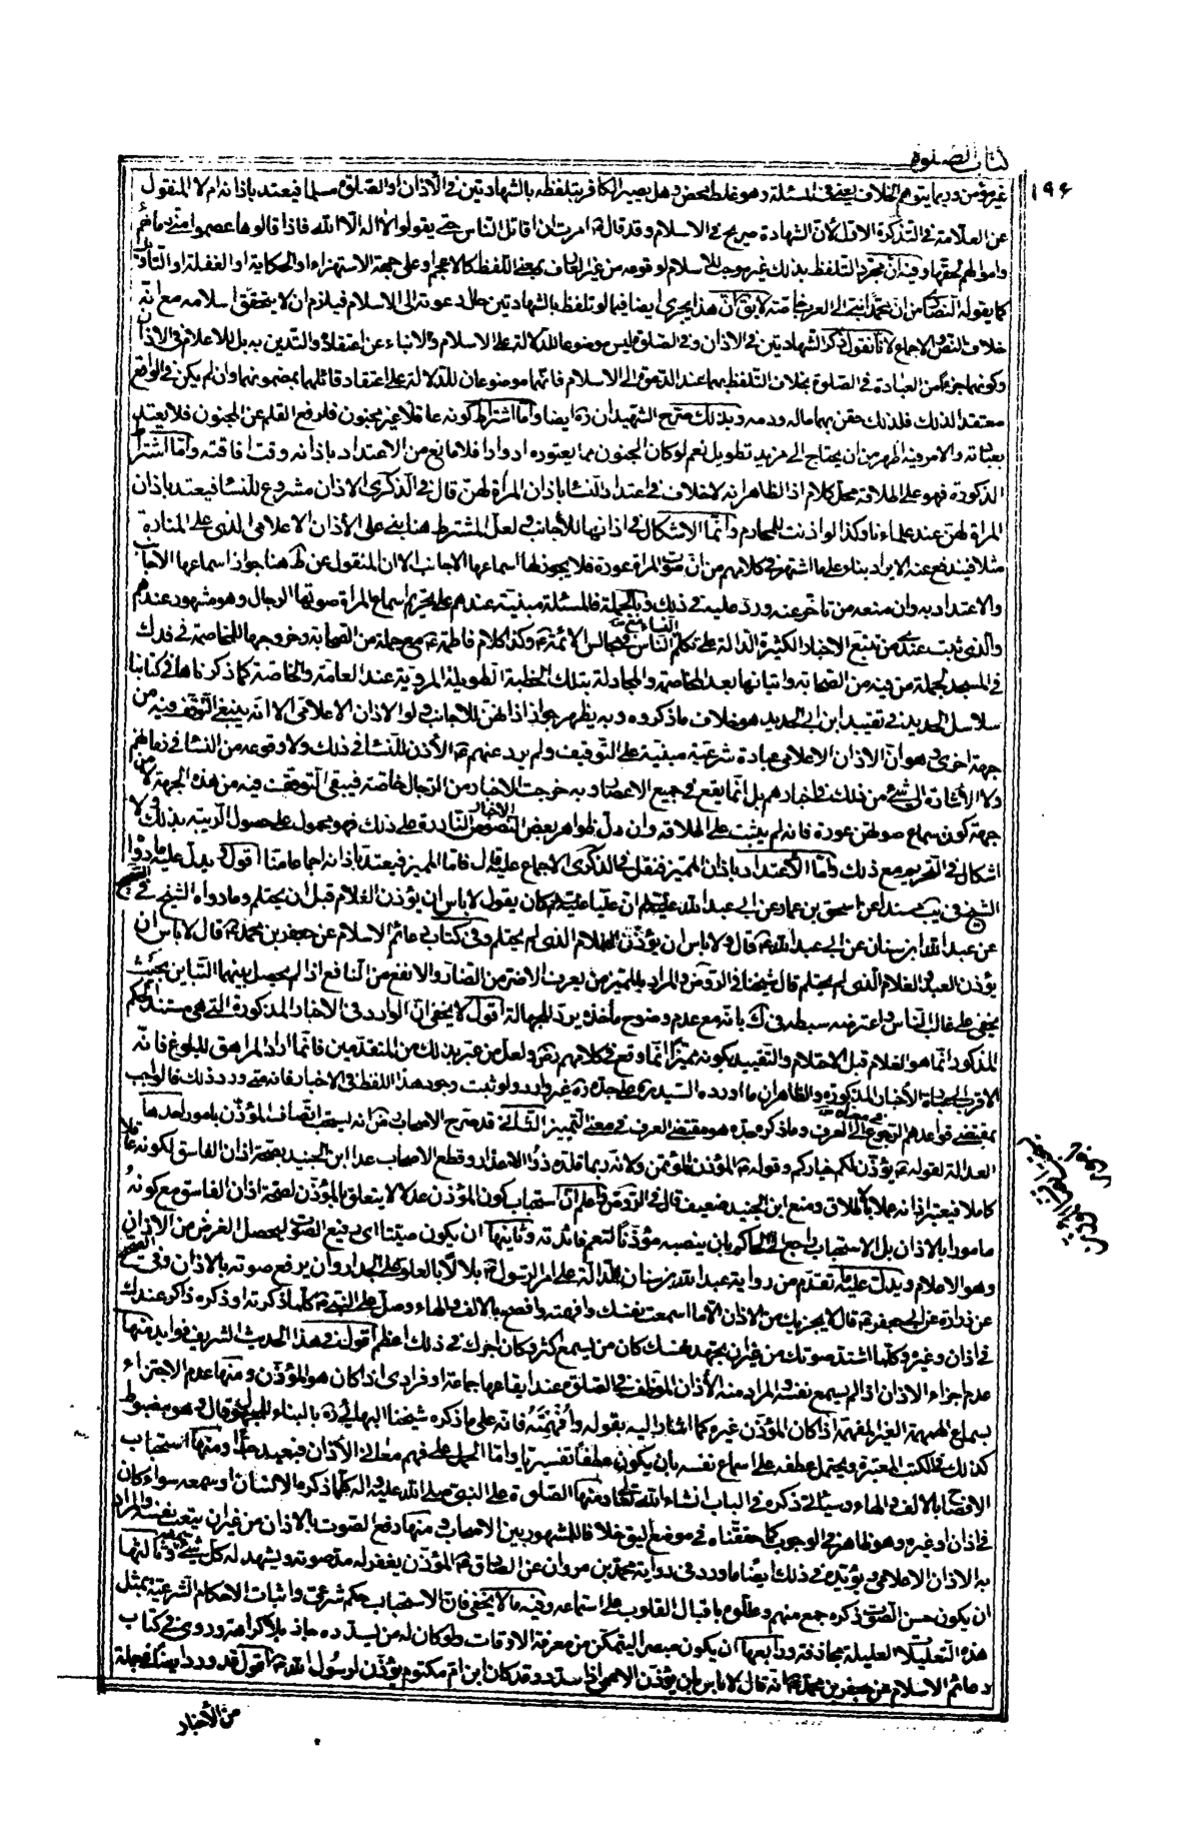 كتاب الصلوة
١٩٤
غير مؤمن وربما يتوهم الخلاف بعض في المسئلة وهو غلط محض وهل يصير الكافر بتلفظه بالشهادتين في الأذان او الصلوة مسلما فيعتد باذانه ام لا المنقول
عن العلامة في التذكرة الاول لأن الشهادة صريح في الاسلام وقد قال امرت ان اقاتل الناس حتى يقولوا لا اله الا الله فاذا قالوها عصموا مني دماءهم
واموالهم الا بحقها وفيه ان مجرد التلفظ بذلك غير موجب للاسلام لوقوعه من غير العارف بمعنى اللفظ كالاعجم او على جهة الاستهزاء او الحكاية او الغفلة او التاويل
كما يقوله النصارى من ان محمدا نبي الى العرب خاصة لا يق ان هذا يجري ايضا فيما لو تلفظ بالشهادتين حال دعوته الى الاسلام فيلزم ان لا يتحقق اسلامه مع انه
خلاف النص والاجماع لانا نقول ذكر الشهادتين في الاذان وفي الصلوة ليس موضوعا للدلالة على الاسلام والانباء عن اعتقاده والتدين به بل للاعلام في الاذان
وكونها جزءا من العبادة في الصلوة بخلاف التلفظ بهما عند الدعوة الى الاسلام فانهما موضوعان للدلالة على اعتقاد قائلهما بمضمونهما وان لم يكن في الواقع
معتقدا لذلك فلذلك حقن بهما ماله ودمه وبذلك صرح الشهيدان ره ايضا واما اشتراط كونه عاقلا غير مجنون فلرفع القلم عن المجنون فلا يعتد
بعباداته والامر فيه اظهر من ان يحتاج الى مزيد تطويل نعم لو كان الجنون مما يعتوره ادوارا فلا مانع من الاعتداد باذانه وقت افاقته واما اشتراط
الذكورة فهو على اطلاقه محل كلام اذ الظاهر انه لا خلاف في اعتداد النساء باذان المرأة لهن قال في الذكرى الاذان مشروع للنساء فيعتد باذان
المراة لهن عند علماءنا وكذا لو اذنت للمحارم وانما الاشكال في اذانها للأجانب ولعل المشترط هنا بنى على الأذان الاعلامي الذي على المنارة
مثلا فيندفع عنه الايراد بناء على ما اشتهر في كلامهم من ان صوت المراة عورة فلا يجوز لها اسماعها الاجانب الا ان المنقول عن ط هنا جواز اسماعها الاجانب
والاعتداد به وان منعه من تاخر عنه ورد عليه في ذلك وبالجملة فالمسئلة مبنية عندهم على تحريم اسماع المراة صوتها الرجال وهو مشهور عندهم
والذي ثبت عندي من تتبع الاخبار الكثيرة الدالة على تكلم النساء مع الناس في مجالس الائمة ع وكذا كلام فاطمة ع مع جملة من الصحابة وخروجها للمخاصمة في فدك
في المسجد لجملة من فيه من الصحابة واتيانها بعد المخاصمة والمجادلة بتلك الخطبة الطويلة المروية عند العامة والخاصة كما ذكرناها في كتابنا
سلاسل الحديد في تقييد ابن ابي الحديد هو خلاف ما ذكروه وبه يظهر جواز اذانهن للاجانب ولو الاذان الاعلامي الا انه ينبغي التوقف فيه من
جهة اخرى وهو ان الاذان الاعلامي عبادة شرعية مبنية على التوقيف ولم يرد عنهم ع الأذن للنساء في ذلك ولا وقوعه من النساء في زمانهم
ولا الأشارة الى شئ من ذلك في اخبارهم بل انما يقع في جميع الاعصار وبه خرجت الاخبار من الرجال خاصة فيبقى التوقف فيه من هذه الجهة لا من
جهة كون سماع صوتهن عورة فانه لم يثبت على اطلاقه وان دل ظواهر بعض الاخبار النادرة على ذلك فهو محمول على حصول الريبة بذلك ولا
اشكال في التحريم مع ذلك واما الأعتداد باذان المميز فنقل في الذكرى الاجماع عليه قال فاما المميز فيعتد باذانه اجماعا منا اقول ويدل عليه ما رواه
الشيخ في يب مسندا عن اسحق بن عمار عن ابي عبد الله ان عليا كان يقول لا باس ان يؤذن الغلام قبل ان يحتلم وما رواه الشيخ في الصحيح
عن عبد الله بن سنان عن ابي عبد الله ع قال ولا باس ان يؤذن الغلام الذي لم يحتلم وفي كتاب دعائم الاسلام عن جعفر بن محمد ع قال لا باس ان
يؤذن العبد والغلام الذي لم يحتلم قال شيخنا في الروض والمراد بالمميز من يعرف الاضر من الضار والانفع من النافع اذا لم يحصل بينهما التباس بحيث
يخفى على غالب الناس واعترضه سبطه في ك بانه مع عدم وضوح مأخذه يرد للجهالة اقول لا يخفى ان الوارد في الاخبار المذكورة التي هي مستند الحكم
المذكور انما هو الغلام قبل الاحتلام والتقييد بكونه مميزا انما وقع في كلامهم رض ولعل من عبر بذلك من المتقدمين فانما اراد المراهق للبلوغ فانه
الاقرب الى الأخبار المذكورة والظاهر ان ما اورده السيد ره على جده ره غير وارد ولو ثبت وجود هذا اللفظ في الاخبار فانه متى ورد ذلك فالواجب
بمقتضى قواعدهم الرجوع في معناه الى العرف وما ذكره جده هو مقتضى العرف في معنى التمييز الثالثة قد صرح الاصحاب بانه يستحب اتصاف المؤذن بامور احدها
العدالة لقوله ع يؤذن لكم خياركم وقوله ع المؤذن مؤتمن ولانه ربما قلده ذوا الاعذار وقطع الاصحاب عدا ابن الجنيد بصحة اذان الفاسق لكونه عاقلا
كاملا فيعتبر اذانه عملا بالاطلاق ومنع ابن الجنيد ضعيف قال في الروض واعلم ان استحباب كون المؤذن عدلا لا يتعلق بالمؤذن لصحة اذان الفاسق مع كونه
مامورا بالاذان بل الاستحباب راجع الى الحاكم بان ينصبه مؤذنا لتعم فائدته وثانيها ان يكون صيتا اي رفيع الصوت ليحصل الغرض من الاذان
وهو الاعلام ويدل عليه ما تقدم من رواية عبد الله بن سنان الدالة على امر الرسول ص بلالا بالعلو على الجدار وان يرفع صوته بالاذان وفي الصحيح
عن زرارة عن ابي جعفر ع قال لا يجزيك من الاذان الا ما اسمعت نفسك وافهمته وافصح بالالف والهاء وصل على النبي ص كلما ذكرته او ذكره ذاكر عندك
في اذان وغيره وكلما اشتد صوتك من غير ان تجهد نفسك كان من يسمع اكثر وكان اجرك في ذلك اعظم اقول وفي هذا الحديث الشريف فوايد منها
عدم اجزاء الاذان اذا لم يسمع نفسه والمراد منه الأذان الموظف في الصلوة عند ايقاعها جماعة او فرادى اذا كان هو المؤذن ومنها عدم الاجتزاء
بسماع الهمهمة الغير المفهمة اذا كان المؤذن غيره كما اشار اليه بقوله وأفهمته فانه على ما ذكره شيخنا البهائي ره بالبناء للمجهول قال وهو مضبوط
كذلك في الكتب المعتبرة ويحتمل عطفه على اسماع نفسه بان يكون عطفا تفسيريا واما الحمل على فهم معاني الأذان فبعيد جدا ومنها استحباب
الافصاح بالالف والهاء وسيأتي ذكره في الباب انشاء الله تعالى ومنها الصلوة على النبي صلى الله عليه واله كلما ذكره الانسان او سمعه سواء كان
في اذان او غيره وهو ظاهر في الوجوب كما حققناه في موضع اليق خلافا للمشهور بين الاصحاب ومنها رفع الصوت بالاذان من غير ان يتعب نفسه والمراد
به الاذان الاعلامي ويؤيده في ذلك ايضا ما ورد في رواية محمد بن مروان عن الصادق ع المؤذن يغفر له مد صوته ويشهد له كل شئ سمعه وثالثها
ان يكون حسن الصوت ذكره جمع منهم وعللوه باقبال القلوب على استماعه وفيه ما لا يخفى فان الاستحباب حكم شرعي واثبات الاحكام الشرعية بمثل
هذه التعليلات العليلة مجازفة ورابعها ان يكون مبصرا ليتمكن من معرفة الاوقات ولو كان له من يسدده جاز بلا كراهة وروى في كتاب
دعائم الاسلام عن جعفر بن محمد ع انه قال لا باس ان يؤذن الاعمى اذا سدد وقد كان ابن ام مكتوم يؤذن لرسول الله ص اقول قد ورد ايضا في جملة
من الأخبار